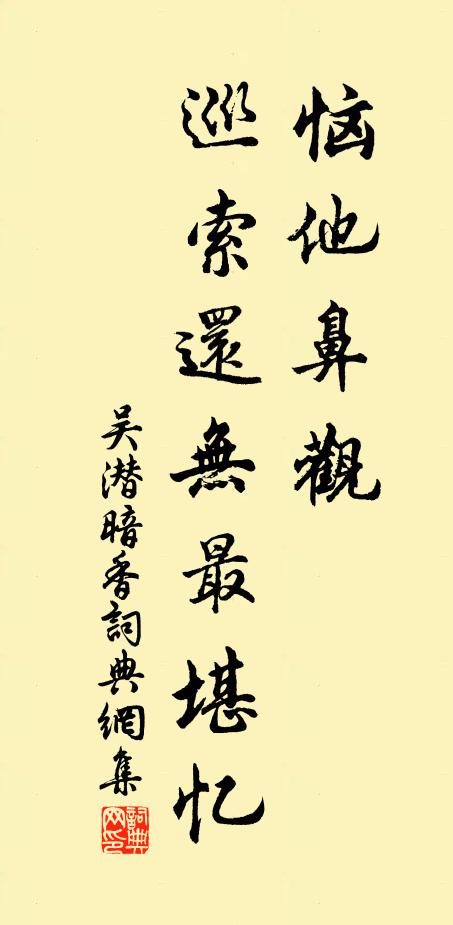 恼他鼻觀
巡索還無最堪忆
吴潜暗香詞典網集
詞典網印